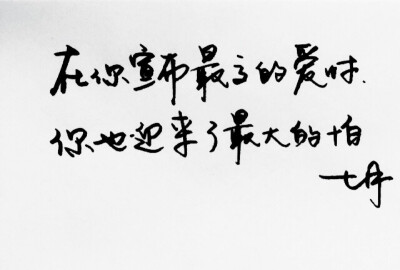 在你宣布最高的爱时.
你也迎来了最大的怕
七月